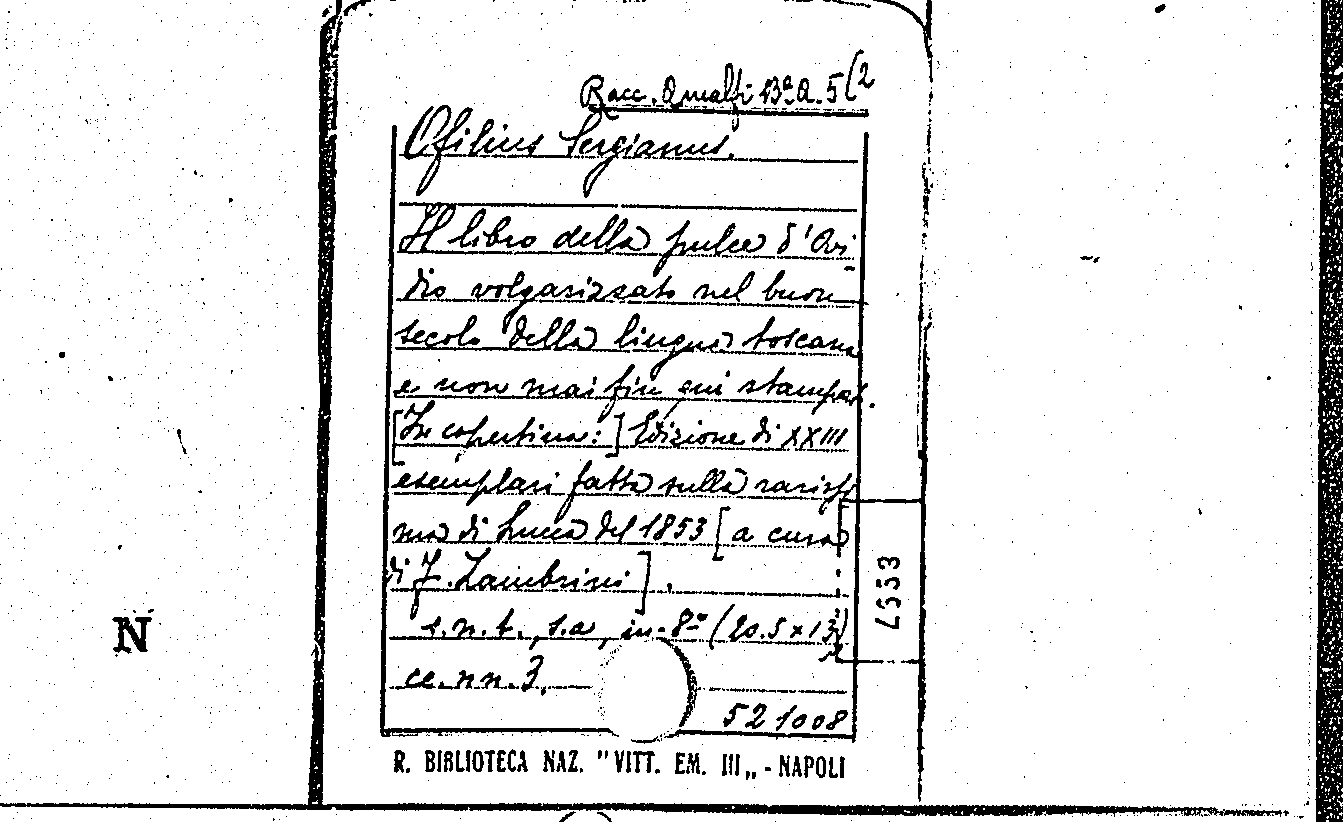 Racc. Amalfi B^a. A. 5(2
Ofilius Sergianus.
Il libro della pulce d'Ovi-
dio volgarizzato nel buon
secolo della lingua toscana
e non mai fin qui stampat.
[In copertina:] Edizione di XXIII
esemplari fatta sulla rarissi
ma di Lucca del 1853 [a cura
di F. Zambrini].
s.n.t., s.a, in-8º (20.5x13)
cc. nn. 3.
521008
R. BIBLIOTECA NAZ. "VITT. EM. III„ - NAPOLI
N